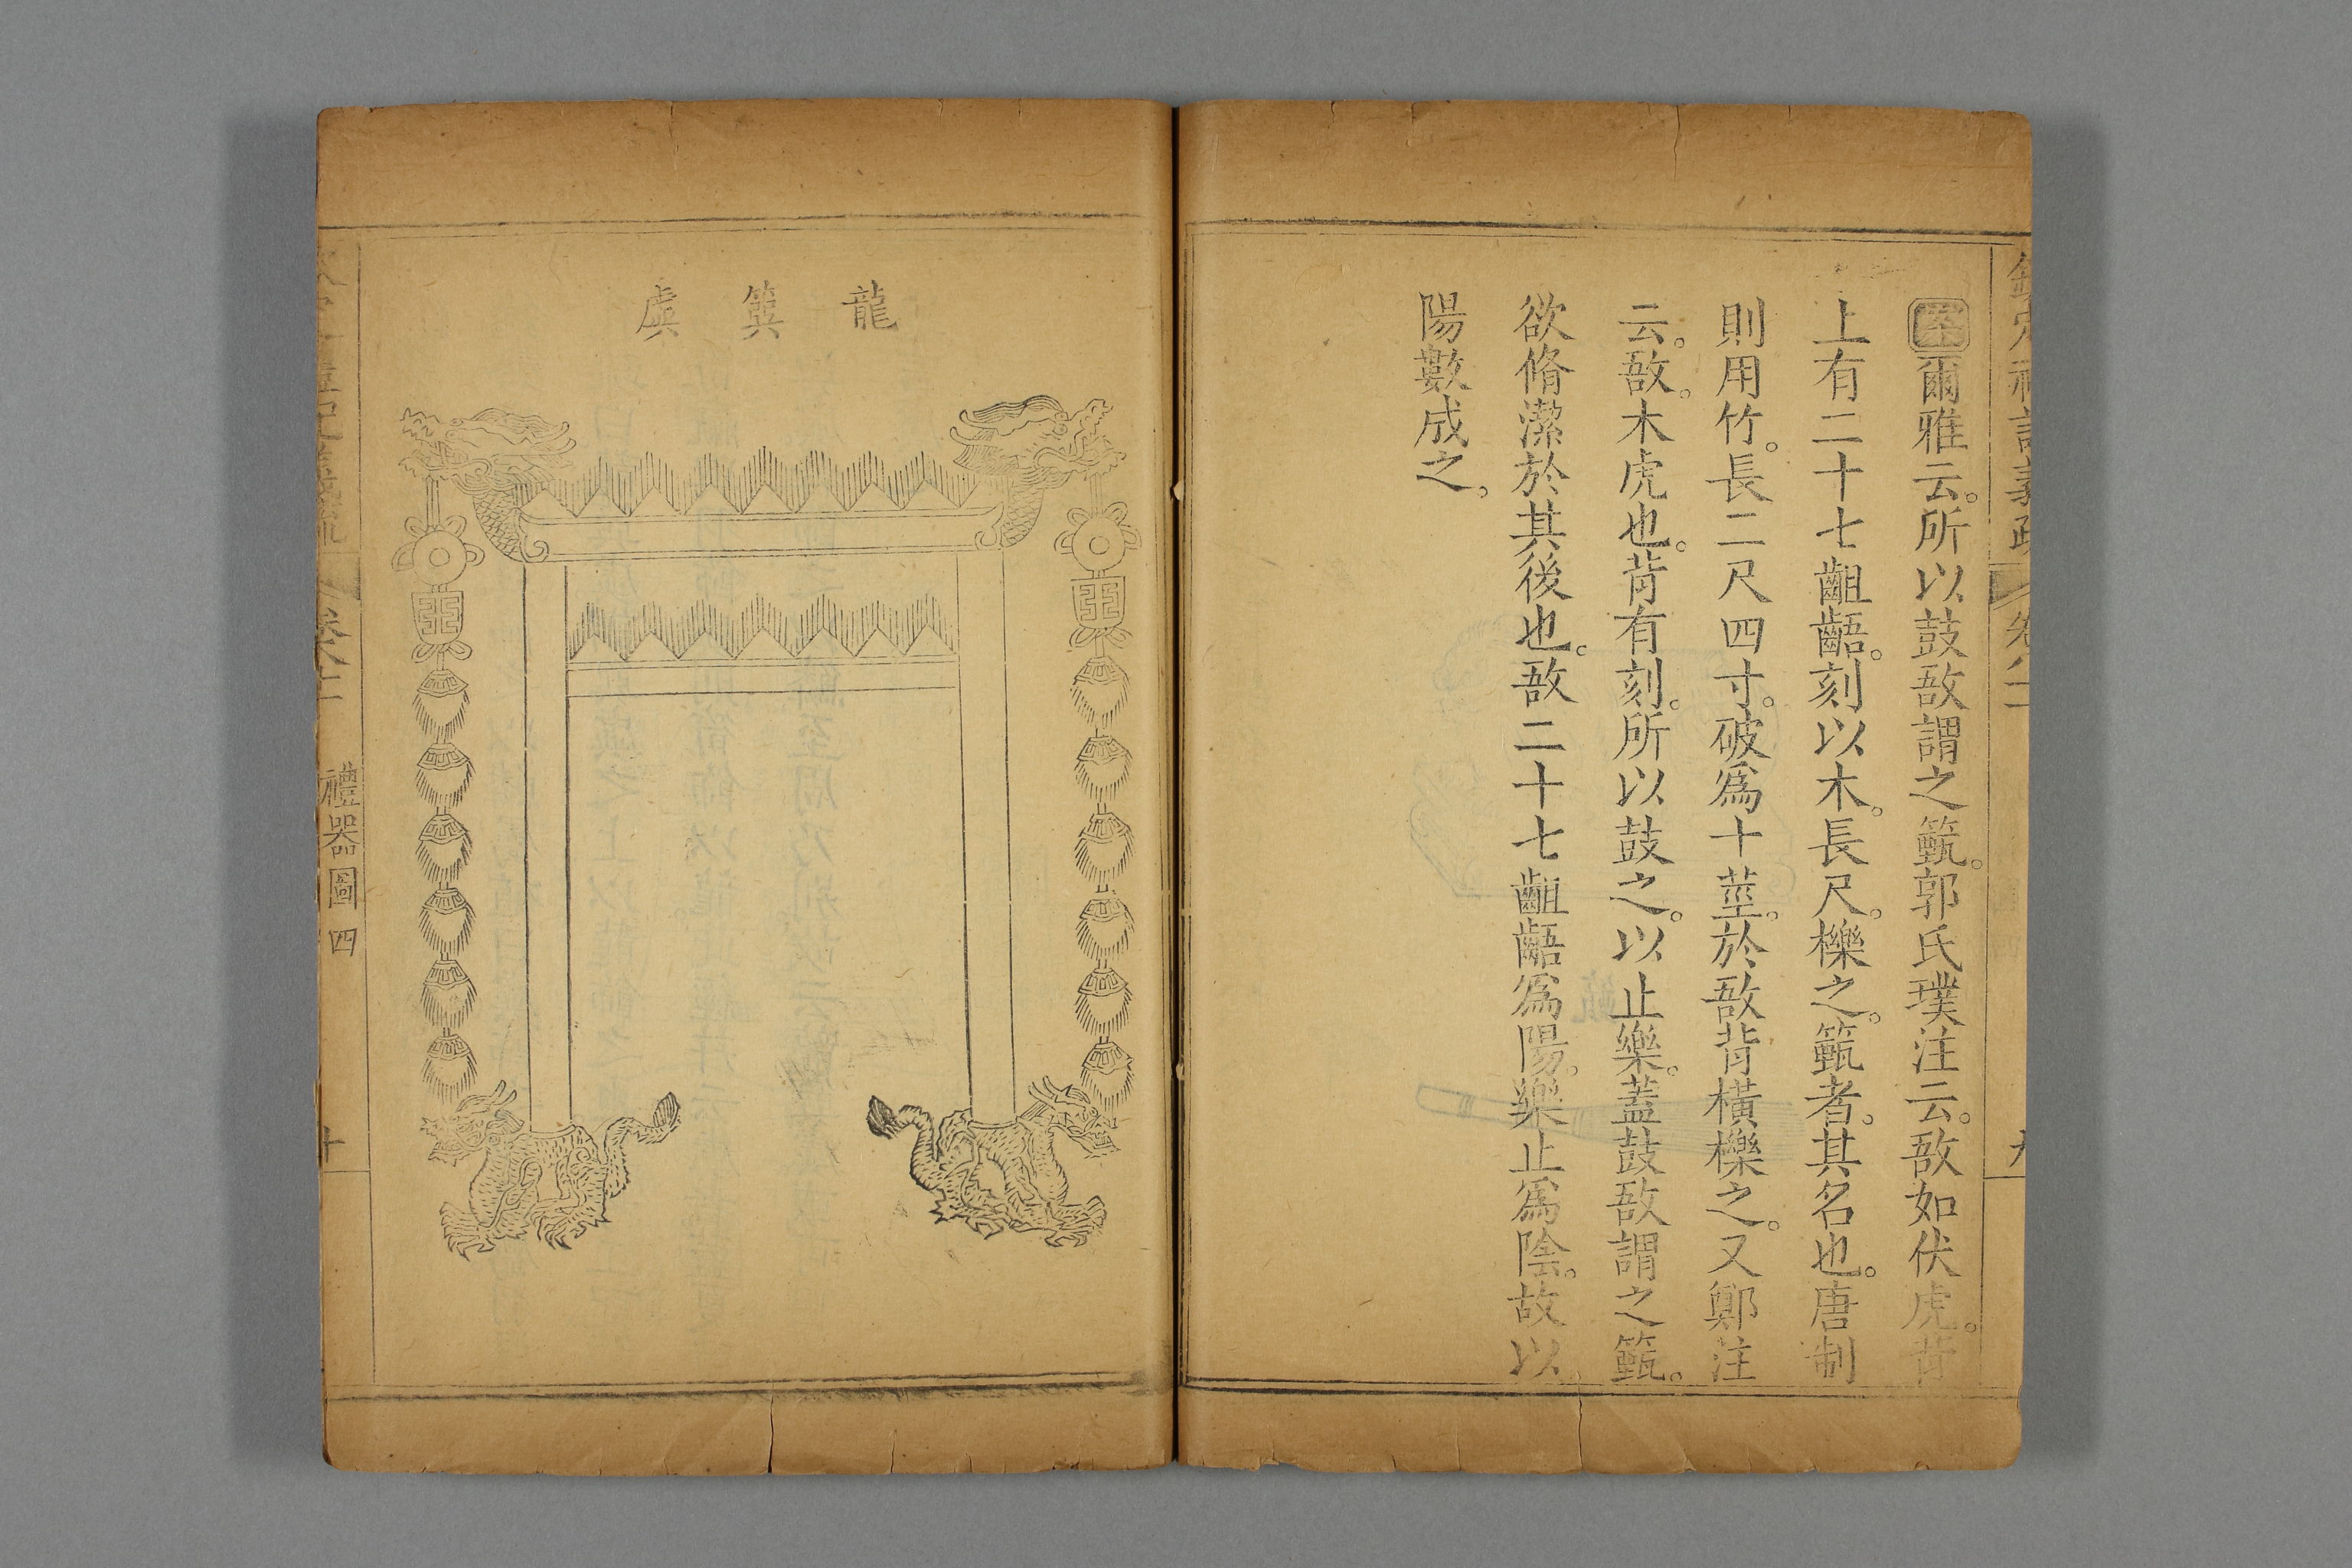 爾雅云。所以鼓敔謂之籈。郭氏璞注云。敔如伏虎。背
上有二十七齟齬。刻以木。長尺。櫟之。籈者。其名也。唐制
則用竹。長二尺四寸。破爲十莖。於敔背橫櫟之。又鄭注
云。敔。木虎也。背有刻。所以鼓之。以止樂。蓋鼓敔謂之籈。
欲脩潔於其後也。敔二十七齟齬爲陽。樂止爲陰。故以
陽數成之。
龍簨虡
禮器圖四
十